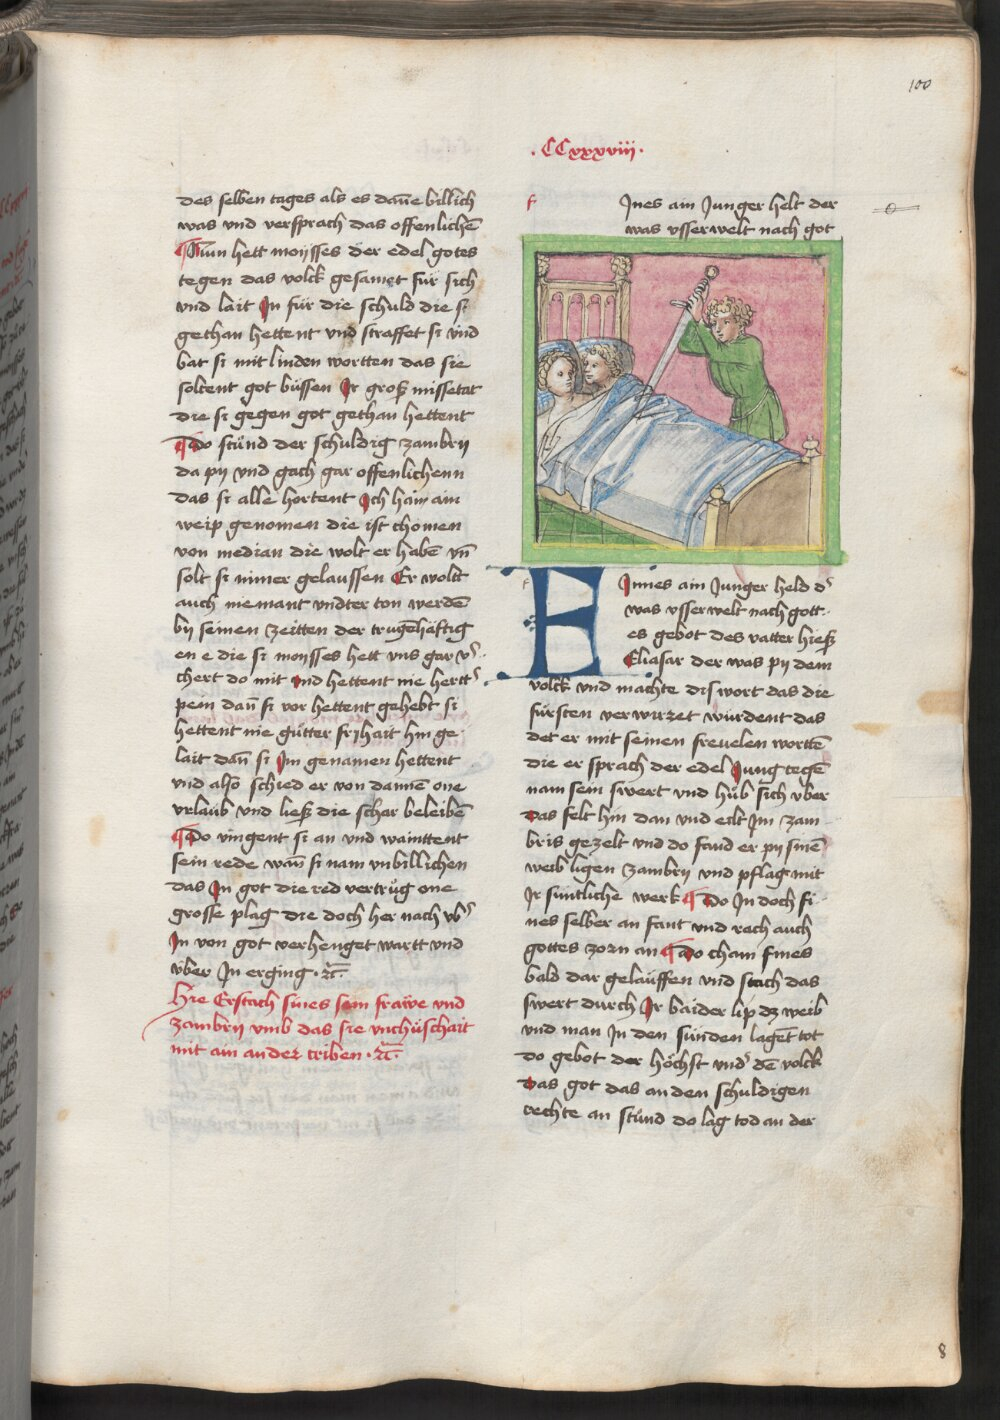 100
. CCxxxviii .
des selben tages als es dan̄e billich
was vnd versprach das offenlichē
Nun hett moÿsses der edel gotes
tegen das volck gesamet für sich
vnd lait In für die schuld die si
gethan hettent vnd straffet si vnd
bat si mit linden wortten das sie
soltent got büssen Ir groß missetat
die si gegen got gethan hettent
Do stůnd der schuldig zambrÿ
da pÿ vnd gach gar offenlichenn
das si alle hortent Ich hain ain
weip genomen die ist chomen
von median die wolt er habē vn̄
solt si nimer gelaussen Er wolt
auch niemant vndter ton werdē
bÿ seinen zeitten der trugēhäftig
en e die si moÿsses hett vns gar v͛
chert do mit vnd hettent nie hertt͛
pein dan̄ si vor hettent gehebt si
hettent nie gůtter frihait hin ge
lait dan̄ si Im genamen hettent
vnd also schied er von dannē one
vrlaub vnd ließ die schar beleibē
Do vingent si an vnd wainttent
sein rede wan̄ si nam vnbillichen
das In got die red vertrůg one
grosse plag die doch her nach vb͛
In von got verhenget wartt vnd
vber In erging . ꝛc̄.
Hie Erstach fines sein frawe vnd
zambrÿ vmb das sie vnchüschait
mit ain ander triben . ꝛc̄.
f
Ines ain Junger helt der
was vsserwelt nach got
FInnes ain Junger held d͛
was vsserwelt nach gott
es gebot des vatter hieß
Eliasar der was pÿ dem
volck vnd machte dis wort das die
fürsten verwirzet würdent das
det er mit seinen frevelen wortē
die er sprach der edel Jung tegē
nam sein swert vnd hůb sich vber
das felt hin dan vnd eilt Im zam
bris gezelt vnd do fand er pÿ sinē
weib ligen zambrÿ vnd pflag mit
Ir süntliche werk Do In doch fi
nes selber an fant vnd rach auch
gottes zorn an Do cham fines
bald dar gelauffen vnd stach das
swert durch Ir baider lip dz weib
vnd man In den sünden lagēt tot
do gebot der höchst vnd͛ dē volck
Das got das an den schuldigen
rechte an stůnd do lag tod an der
8